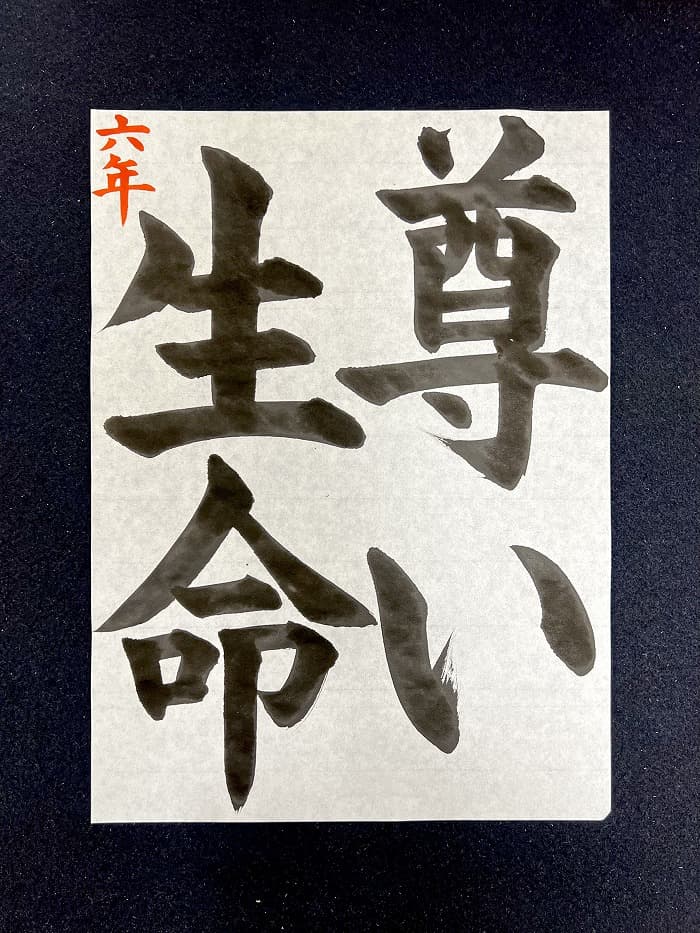 尊い
生命
六年